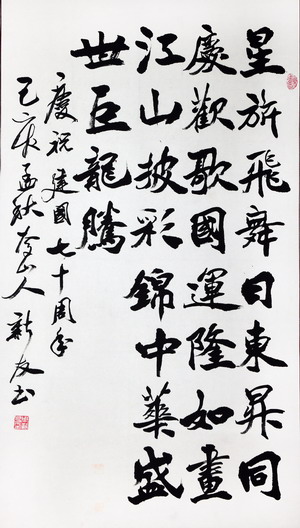 星旂飛舞日東昇同
慶歡歌國運隆如畫
江山披彩錦中華盛
世巨龍騰
慶祝建國七十周年
己亥孟秋山人新友書